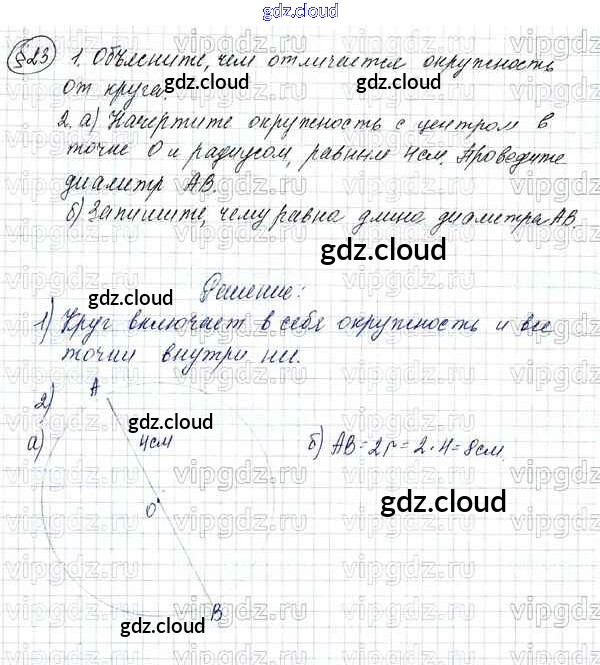 gdz.cloud
§23 1. Объясните, чем отличается окружность
от круга.
2. а) Начертите окружность с центром в
точке О и радиусом, равным 4см. Проведите
диаметр АВ.
б) Запишите, чему равна длина диаметра АВ.
Решение:
1) Круг включает в себя окружность и все
точки внутри ни.
2) А
а) 4см б) АВ=2r=2·4=8см.
О
В
gdz.cloud
gdz.cloud
gdz.cloud
gdz.cloud
gdz.cloud
gdz.cloud
gdz.cloud
vipgdz.ru